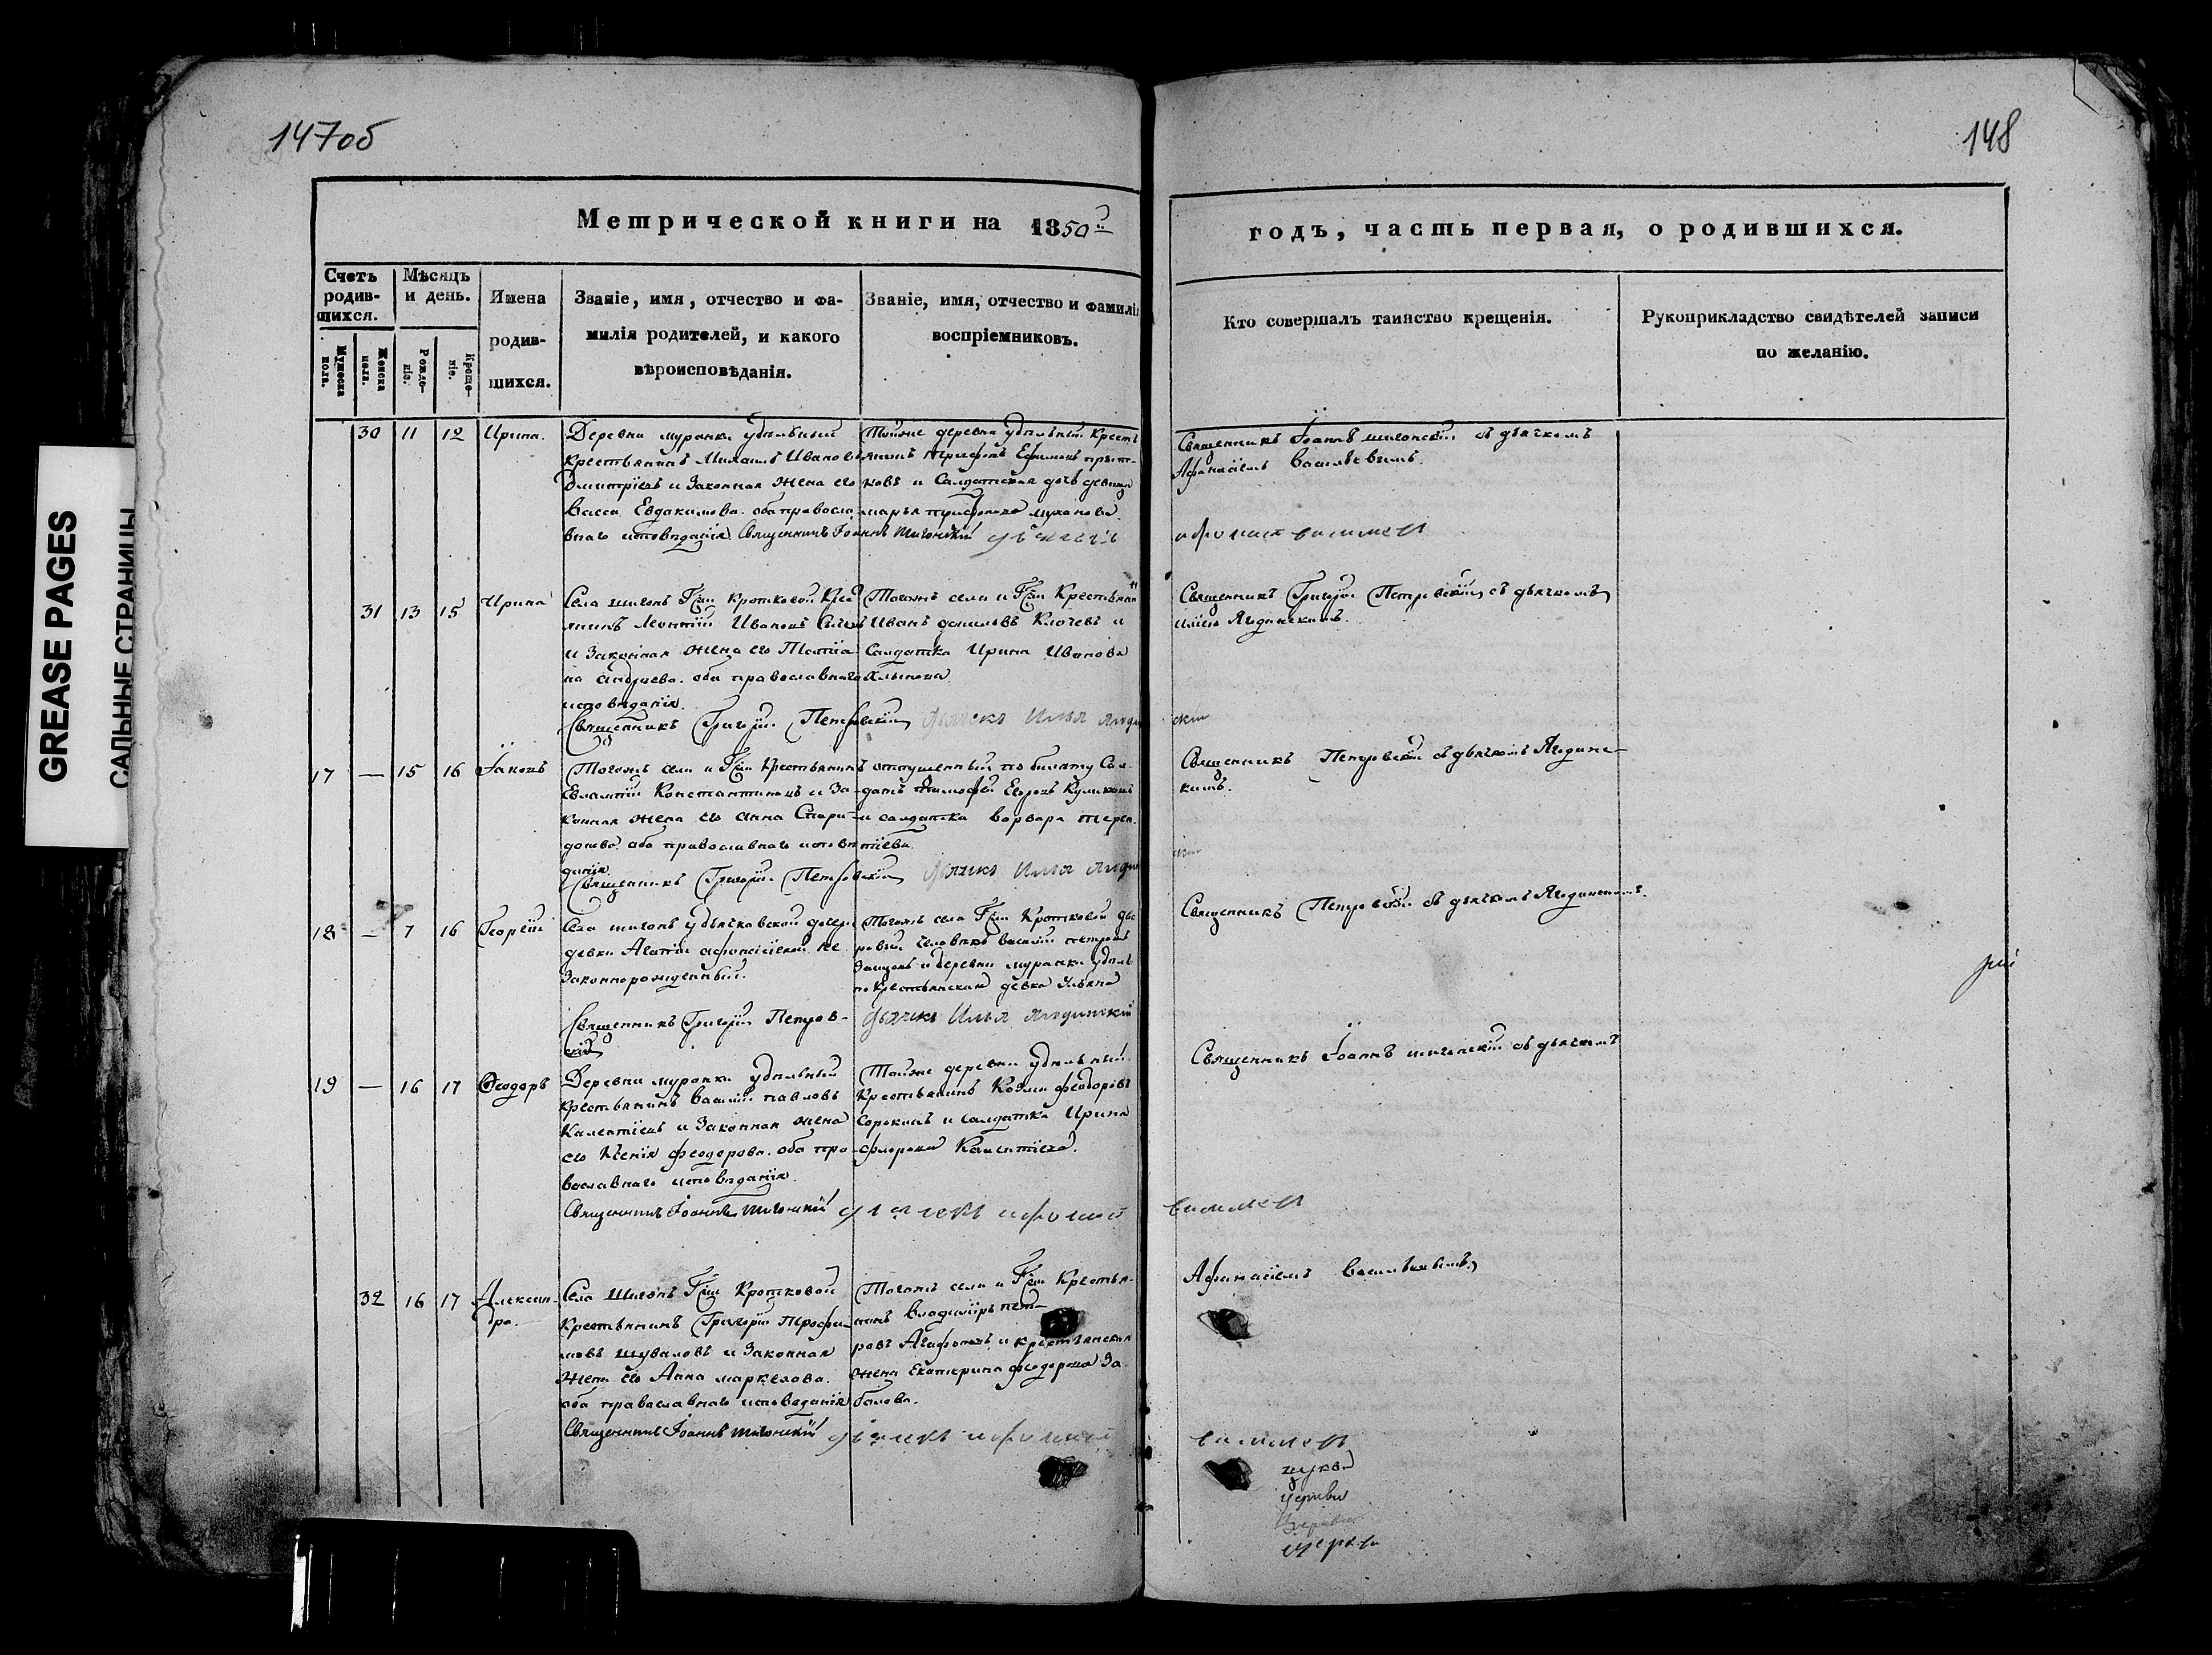 147об
148
Метрической книги на 1850й
годъ, часть первая, о родившихся.
GREASE PAGES
САЛЬНЫЕ СТРАНИЦЫ
Счетъ родив-шихся.
Мужеска пола.
Женска пола.
Мѣсяцъ и день.
Рожде-ніе.
Креще-ніе.
Имена
родив-
шихся.
Званіе, имя, отчество и фа-
милія родителей, и какого
вѣроисповѣданія.
Званіе, имя, отчество и фамилі
воспріемниковъ.
Кто совершалъ таинство крещенія.
Рукоприкладство свидѣтелей записи
по желанію.
30 11 12 Ирина.
Деревни муранки удѣльный
крестьянинъ Михаилъ Ивановъ
Дмитріевъ и Законная жена его
Васса Евдокимова. оба правосла-
внаго исповѣданія. Священникъ Іоаннъ Шигонскій
Тойже деревни удѣльный Кресть
янинъ Трифонъ Ефимовъ
ковъ и Салдатская дочь девица
марья
Священникъ Іоаннъ шигонскій съ дьячкомъ
Афанасіемъ Васильевымъ.
31 13 15 Ирина
Села шигонъ Гжи Кротковой Крес
янинъ Леонтій Ивановъ
и Законная жена его Татіа
на Андреева. оба православнаго
исповѣданія.
Священникъ Григорій Петровскій Дьячекъ Илья Ягодин
скій
Тогожъ села и Гжи Крестьянин
Иванъ даниловъ Клочевъ и
Салдатка Ирина Иванова
Священникъ Григорій Петровскій съ дьячкомъ
Иліею Ягодинскимъ.
17 — 15 16 Іаковъ
Тогожъ села и Гжи Крестьянинъ
Евлампій Константиновъ и За-
конная жена его Анна Спири-
донова. оба православнаго исповѣ
данія.
Священникъ Григорій Петровскій Дьячекъ Илья Ягодин
скій
отпущенный по билету Сал-
датъ Тимофей Егоровъ Куликовъ
и салдатка Варвара терен-
тіева
Священникъ Петровскій съ дьячкомъ Ягодинс-
кимъ.
18 — 7 16 Георгій
Села шигонъ удьячковской дочери
девки Агапіи афанасіевой не
Законнорожденный.
Священникъ Григорій Петров-
скій
Дьячекъ Илья Ягодинскій
Тогожъ села Гжи Кротковой дво
ровый человѣкъ Василій петровъ
и деревни муранки удѣль
но крестьянская девка
Священникъ Петровскій съ дьячкомъ Ягодинскимъ.
19 — 16 17 Феодоръ
Деревни муранки удѣльный
крестьянинъ Василій павловъ
Калентіевъ и Законная жена
его Ксенія феодорова. оба пра-
вославнаго исповѣданія
Священникъ Іоаннъ Шигонскій
Тойже деревни удѣльный
Крестьянинъ Козма феодоровъ
Сорокинъ и салдатка Ирина
Калентіева.
Священникъ Іоаннъ шигонскій съ дьячкомъ
32 16 17 Алексан-
дра.
Села Шигонъ Гжи Кротковой
Крестьянинъ Григорій Трофи-
мовъ шуваловъ и Законная
жена его Анна маркелова.
оба православнаго исповеданія
Священникъ Іоаннъ Шигонскій
Тогожъ села и Гжи Крестья-
нинъ Владиміръ пет-
ровъ Агафоновъ и крестьянская
жена Екатерина феодорова За-
балова.
Афанасіемъ Васильевымъ.
церкви
церкви